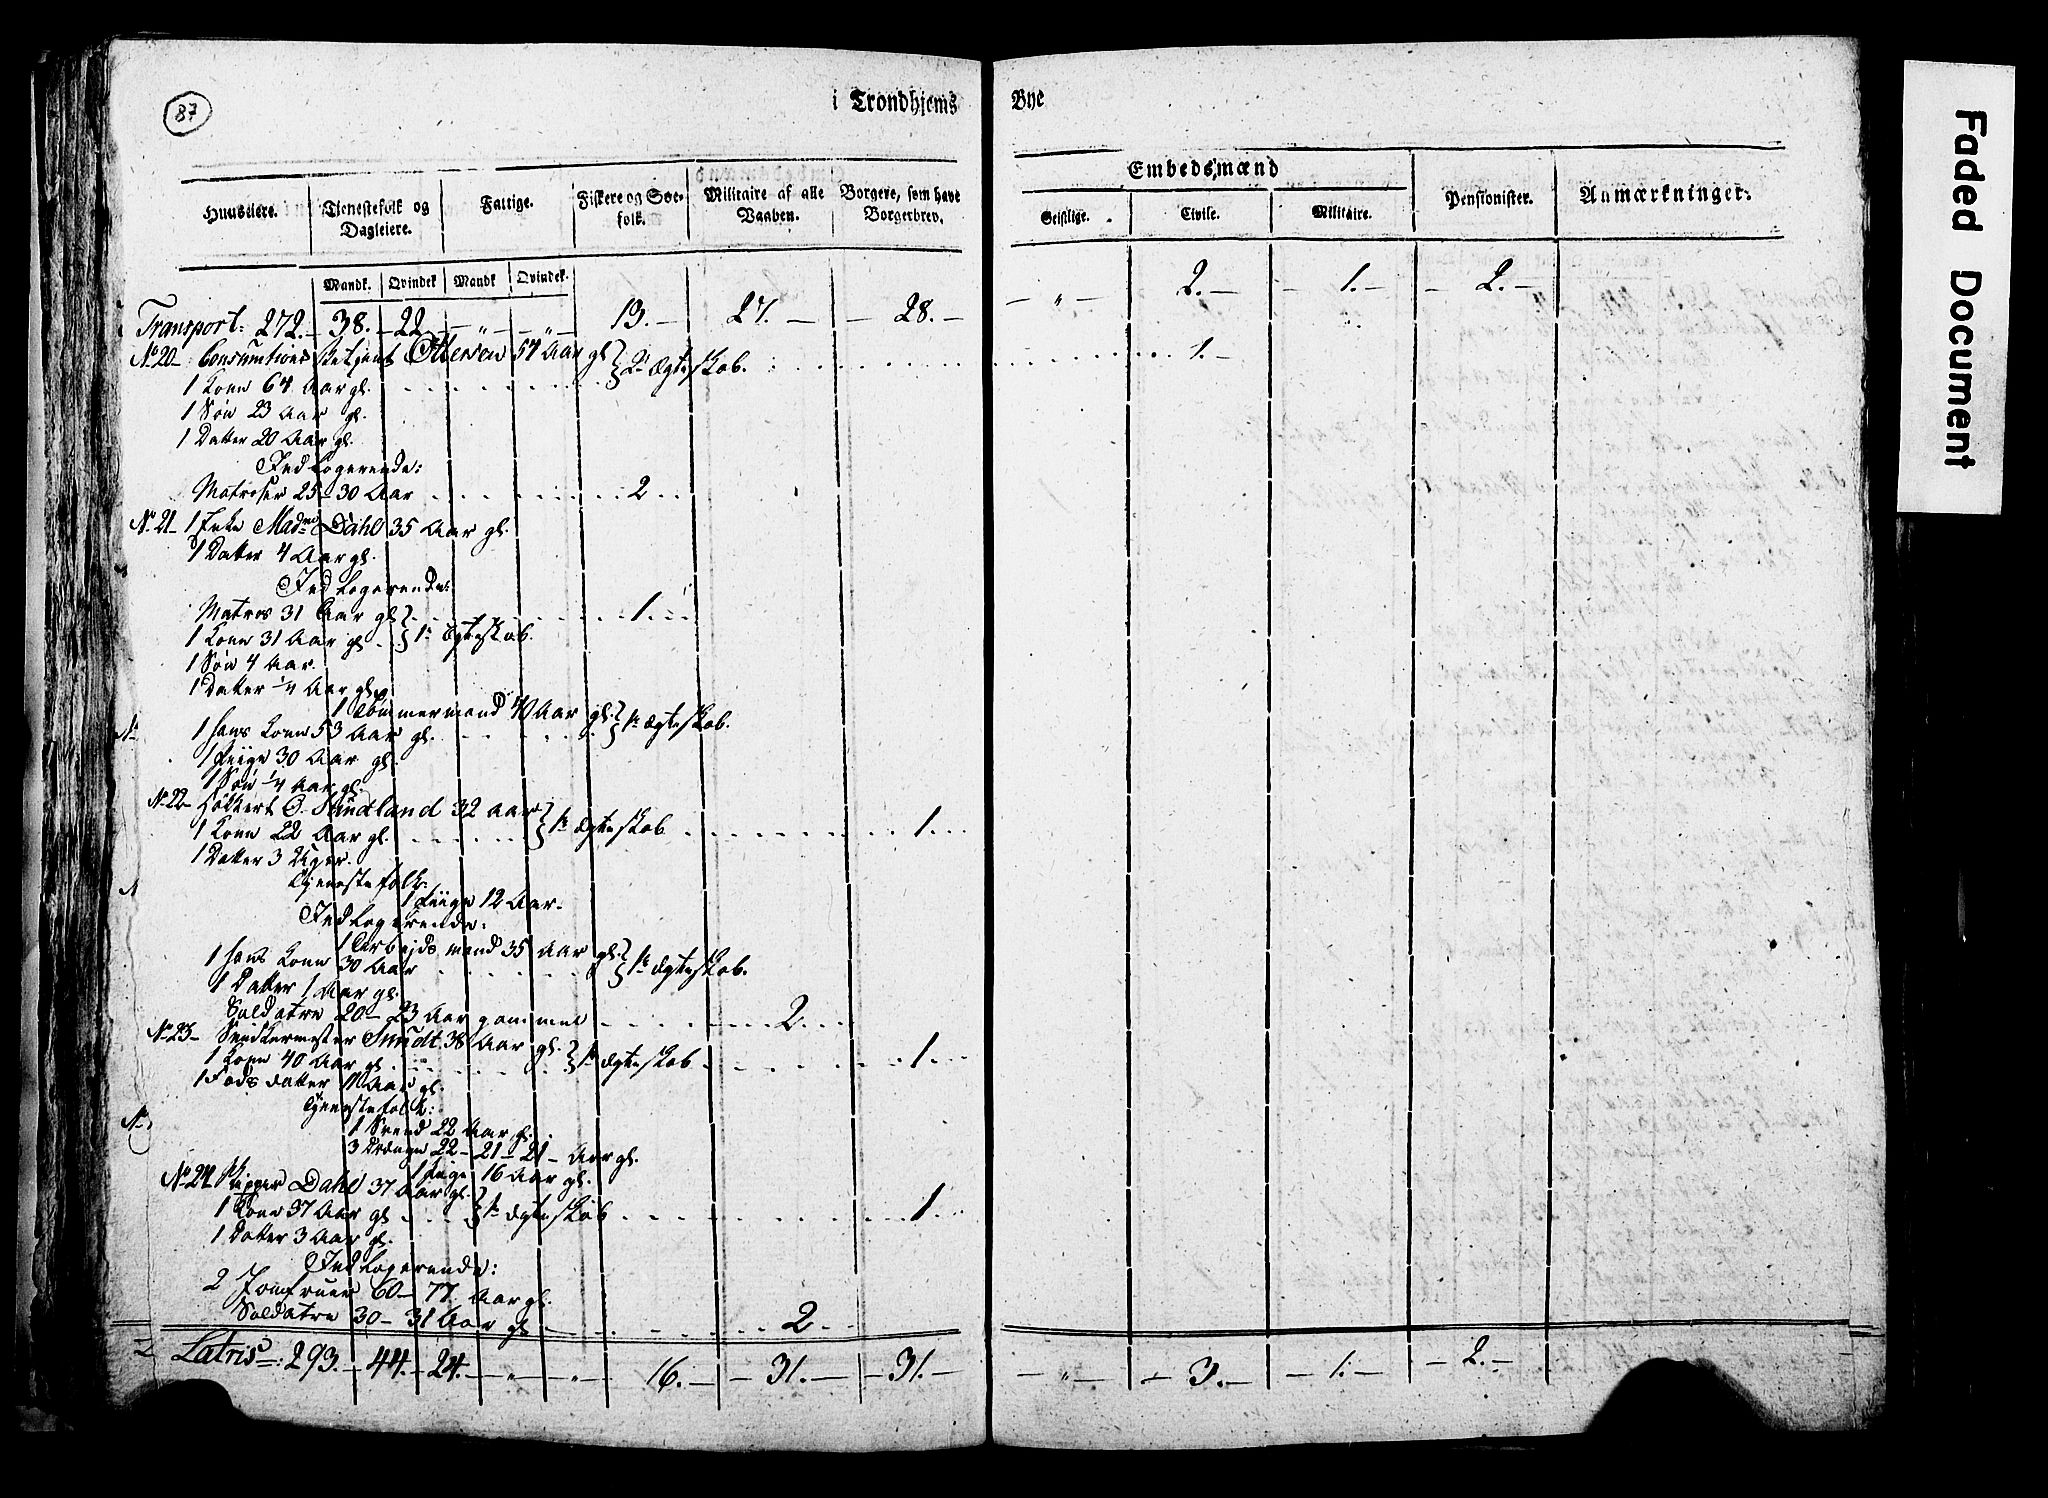 87
i Trondhjems Bye
Huuseiere. Tienestefolk og Dagleiere. Fattige. Fiskere og Søe-folk. Militaire af alle Vaaben. Borgere, som have Borgerbrev. Embedsmænd Pensionister. Anmærkninger.
Geistlige. Civile. Militaire.
Mandk. Qvindek Mandk Qvindek.
Transport: 272. – 38. – 22 – „ – „ – 19. – 27. – 28. – – „ – 2. – – 1. – – 2. –
No 20 – Consumtions Ottersen 54 Aar gl. 2t Ægteskab. 1. –
1 Kone 64 Aar gl.
1 Søn 23 Aar gl.
1 Datter 20 Aar gl.
Indlogerende:
Matroser 25 – 30 Aar 2
No 21 – 1 Enke Madme Dahl 35 Aar gl.
1 Datter 4 Aar gl.
Indlogerende:
Matros 31 Aar gl. 1.
1 Kone 31 Aar gl. 1t Ægteskab.
1 Søn 4 Aar.
1 Datter 1/4 Aar gl.
1 Tømmermand 40 Aar gl. 1t Ægteskab.
1 hans Kone 53 Aar gl.
1 Piige 30 Aar gl.
1 Søn 1/4 Aar gl.
No 22 – O. Sundland 32 Aar 1t Ægteskab
1 Kone 22 Aar gl. 1.
1 Datter 3 Uger.
Tjenestefolk.
1 Piige 12 Aar.
Indlogerende:
1 Arbejdsmand 35 Aar gl. 1t Ægteskab.
1 hans Kone 30 Aar
1 Datter 1 Aar gl.
Soldatre 20 – 23 Aar gammel 2.
No 23 – Snedkermester Smidt 38 Aar gl. 1t Ægteskab
1 Kone 40 Aar gl. 1.
1 datter 11 Aar gl.
Tjenestefolk:
1 Svend 22 Aar gl.
3 Drenge 22 – 21 – 21 – Aar gl.
1 Piige 16 Aar gl.
No 24 Skipper Dahl 37 Aar gl.
1 Kone 37 Aar gl. 1t Ægteskab 1.
1 Datter 3 Aar gl.
Indlogerende:
2 Jomfruer 60 – 77 Aar gl.
Soldatre 30 – 31 Aar gl 2
Latris: 293. – 44. – 24. – „ – „ – 16. – 31. – 31. – – „ – 3. – – 1. – – 2. –
Faded Document